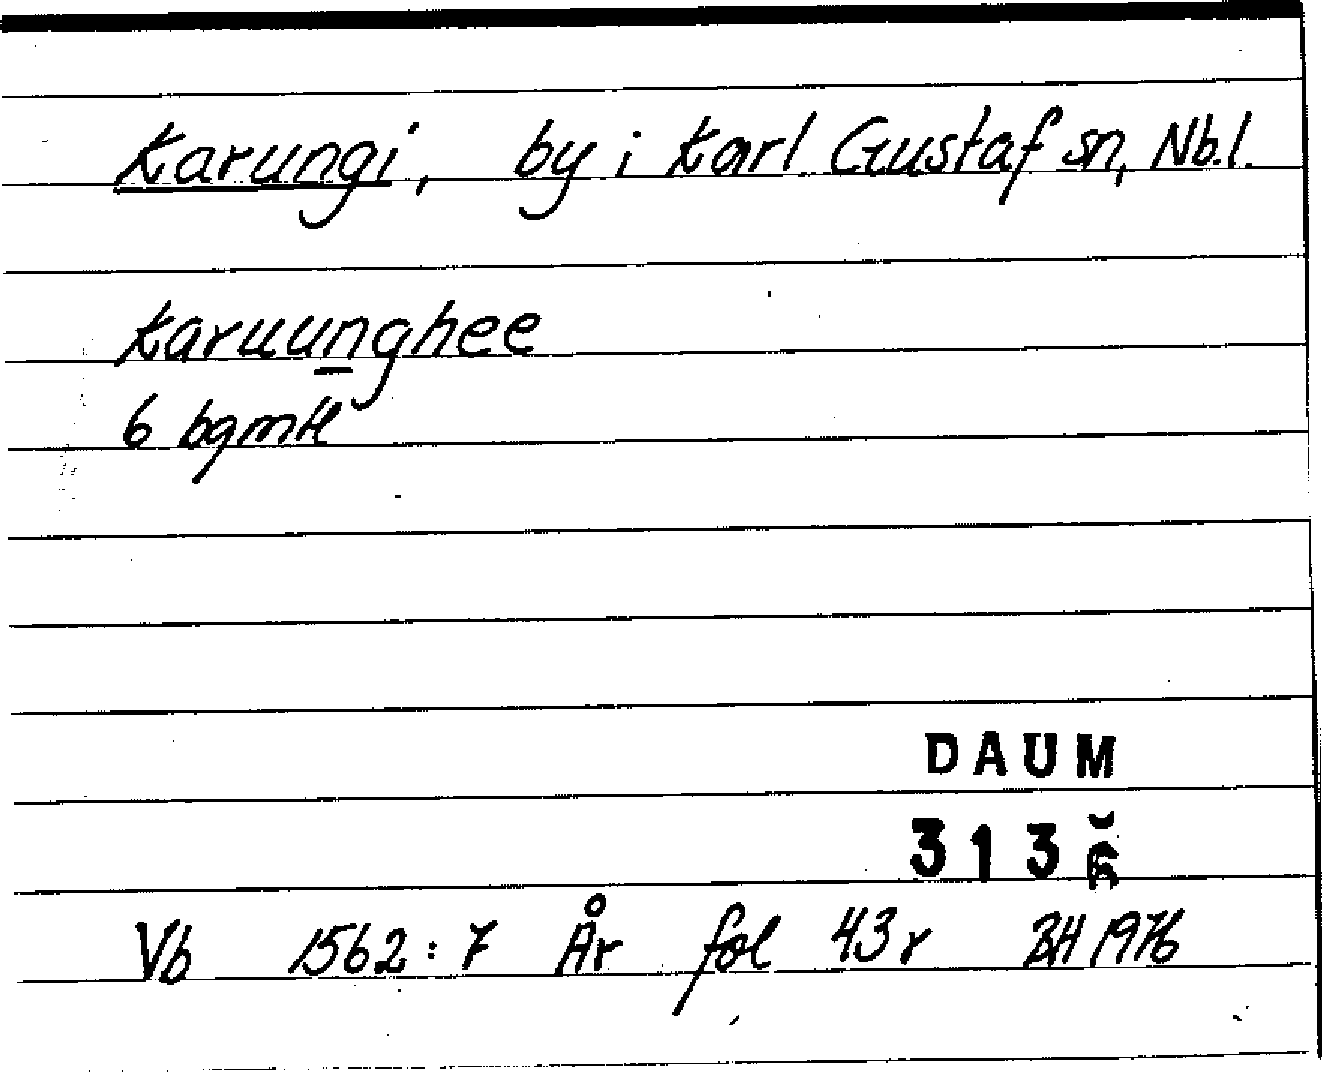 Karungi, by i Karl Gustaf sn, Nb.l.
Karuunghee
6 bgmH
DAUM
313
Vb 1562:7 År fol 43r BH 1976